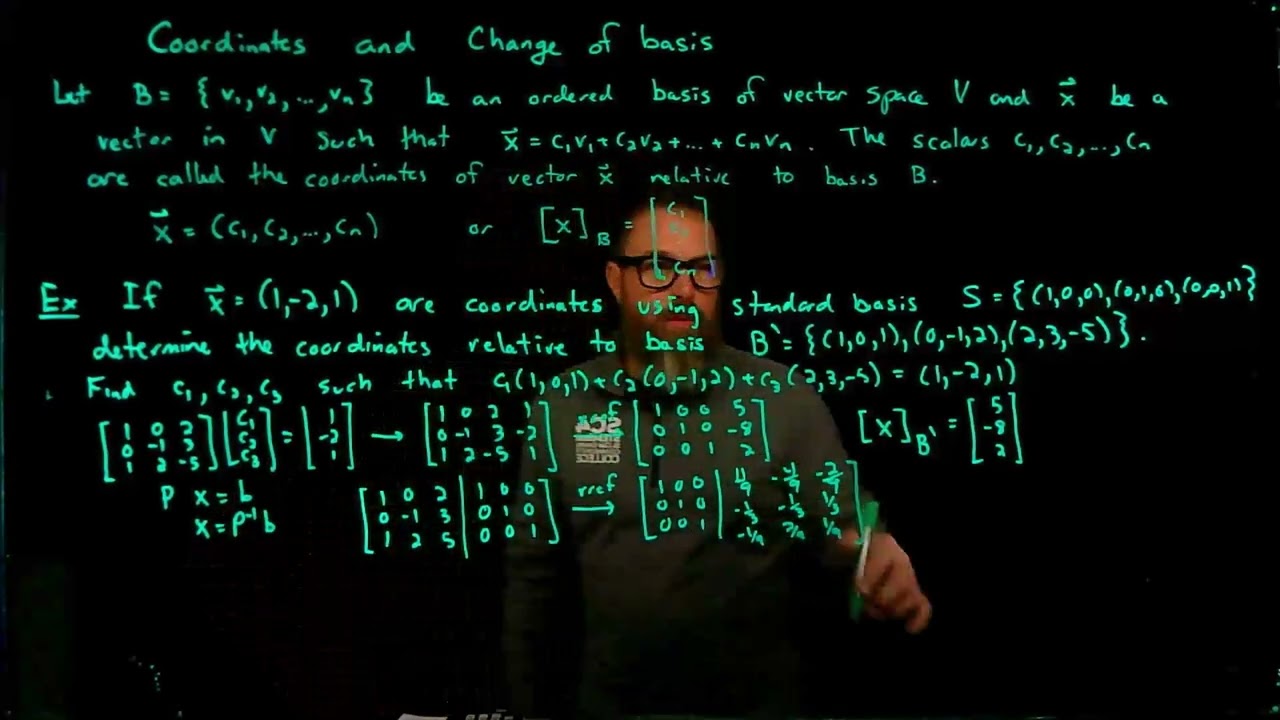 Coordinates and Change of basis
Let B = { v₁, v₂, ..., vₙ } be an ordered basis of vector space V and x⃗ be a
vector in V such that x⃗ = c₁v₁ + c₂v₂ + ... + cₙvₙ. The scalars c₁, c₂, ..., cₙ
are called the coordinates of vector x⃗ relative to basis B.
x⃗ = (c₁, c₂, ..., cₙ) or [x]_B = [c₁ c₂ ⋮ cₙ]
Ex If x⃗ = (1,-2,1) are coordinates using standard basis S = {(1,0,0),(0,1,0),(0,0,1)}
determine the coordinates relative to basis B' = {(1,0,1),(0,-1,2),(2,3,-5)}.
Find c₁, c₂, c₃ such that c₁(1,0,1) + c₂(0,-1,2) + c₃(2,3,-5) = (1,-2,1)
[1 0 2; 0 -1 3; 1 2 -5] [c₁; c₂; c₃] = [1; -2; 1] → [1 0 2 1; 0 -1 3 -2; 1 2 -5 1] → [1 0 0 5; 0 1 0 -8; 0 0 1 2] [x]_B' = [5; -8; 2]
P x = b
x = P⁻¹ b
[1 0 2 | 1 0 0; 0 -1 3 | 0 1 0; 1 2 5 | 0 0 1] rref → [1 0 0 | 11/9 -4/9 -2/9; 0 1 0 | -1/3 -1/3 1/3; 0 0 1 | -1/9 2/9 1/9]